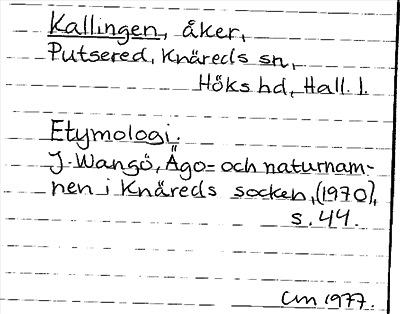 Kallingen, åker,
Putsered, Knäreds sn,
Höks hd, Hall. l.
Etymologi:
J. Wangö, Ägo- och naturnam-
nen i Knäreds socken, (1970),
s. 44.
CM 1977.